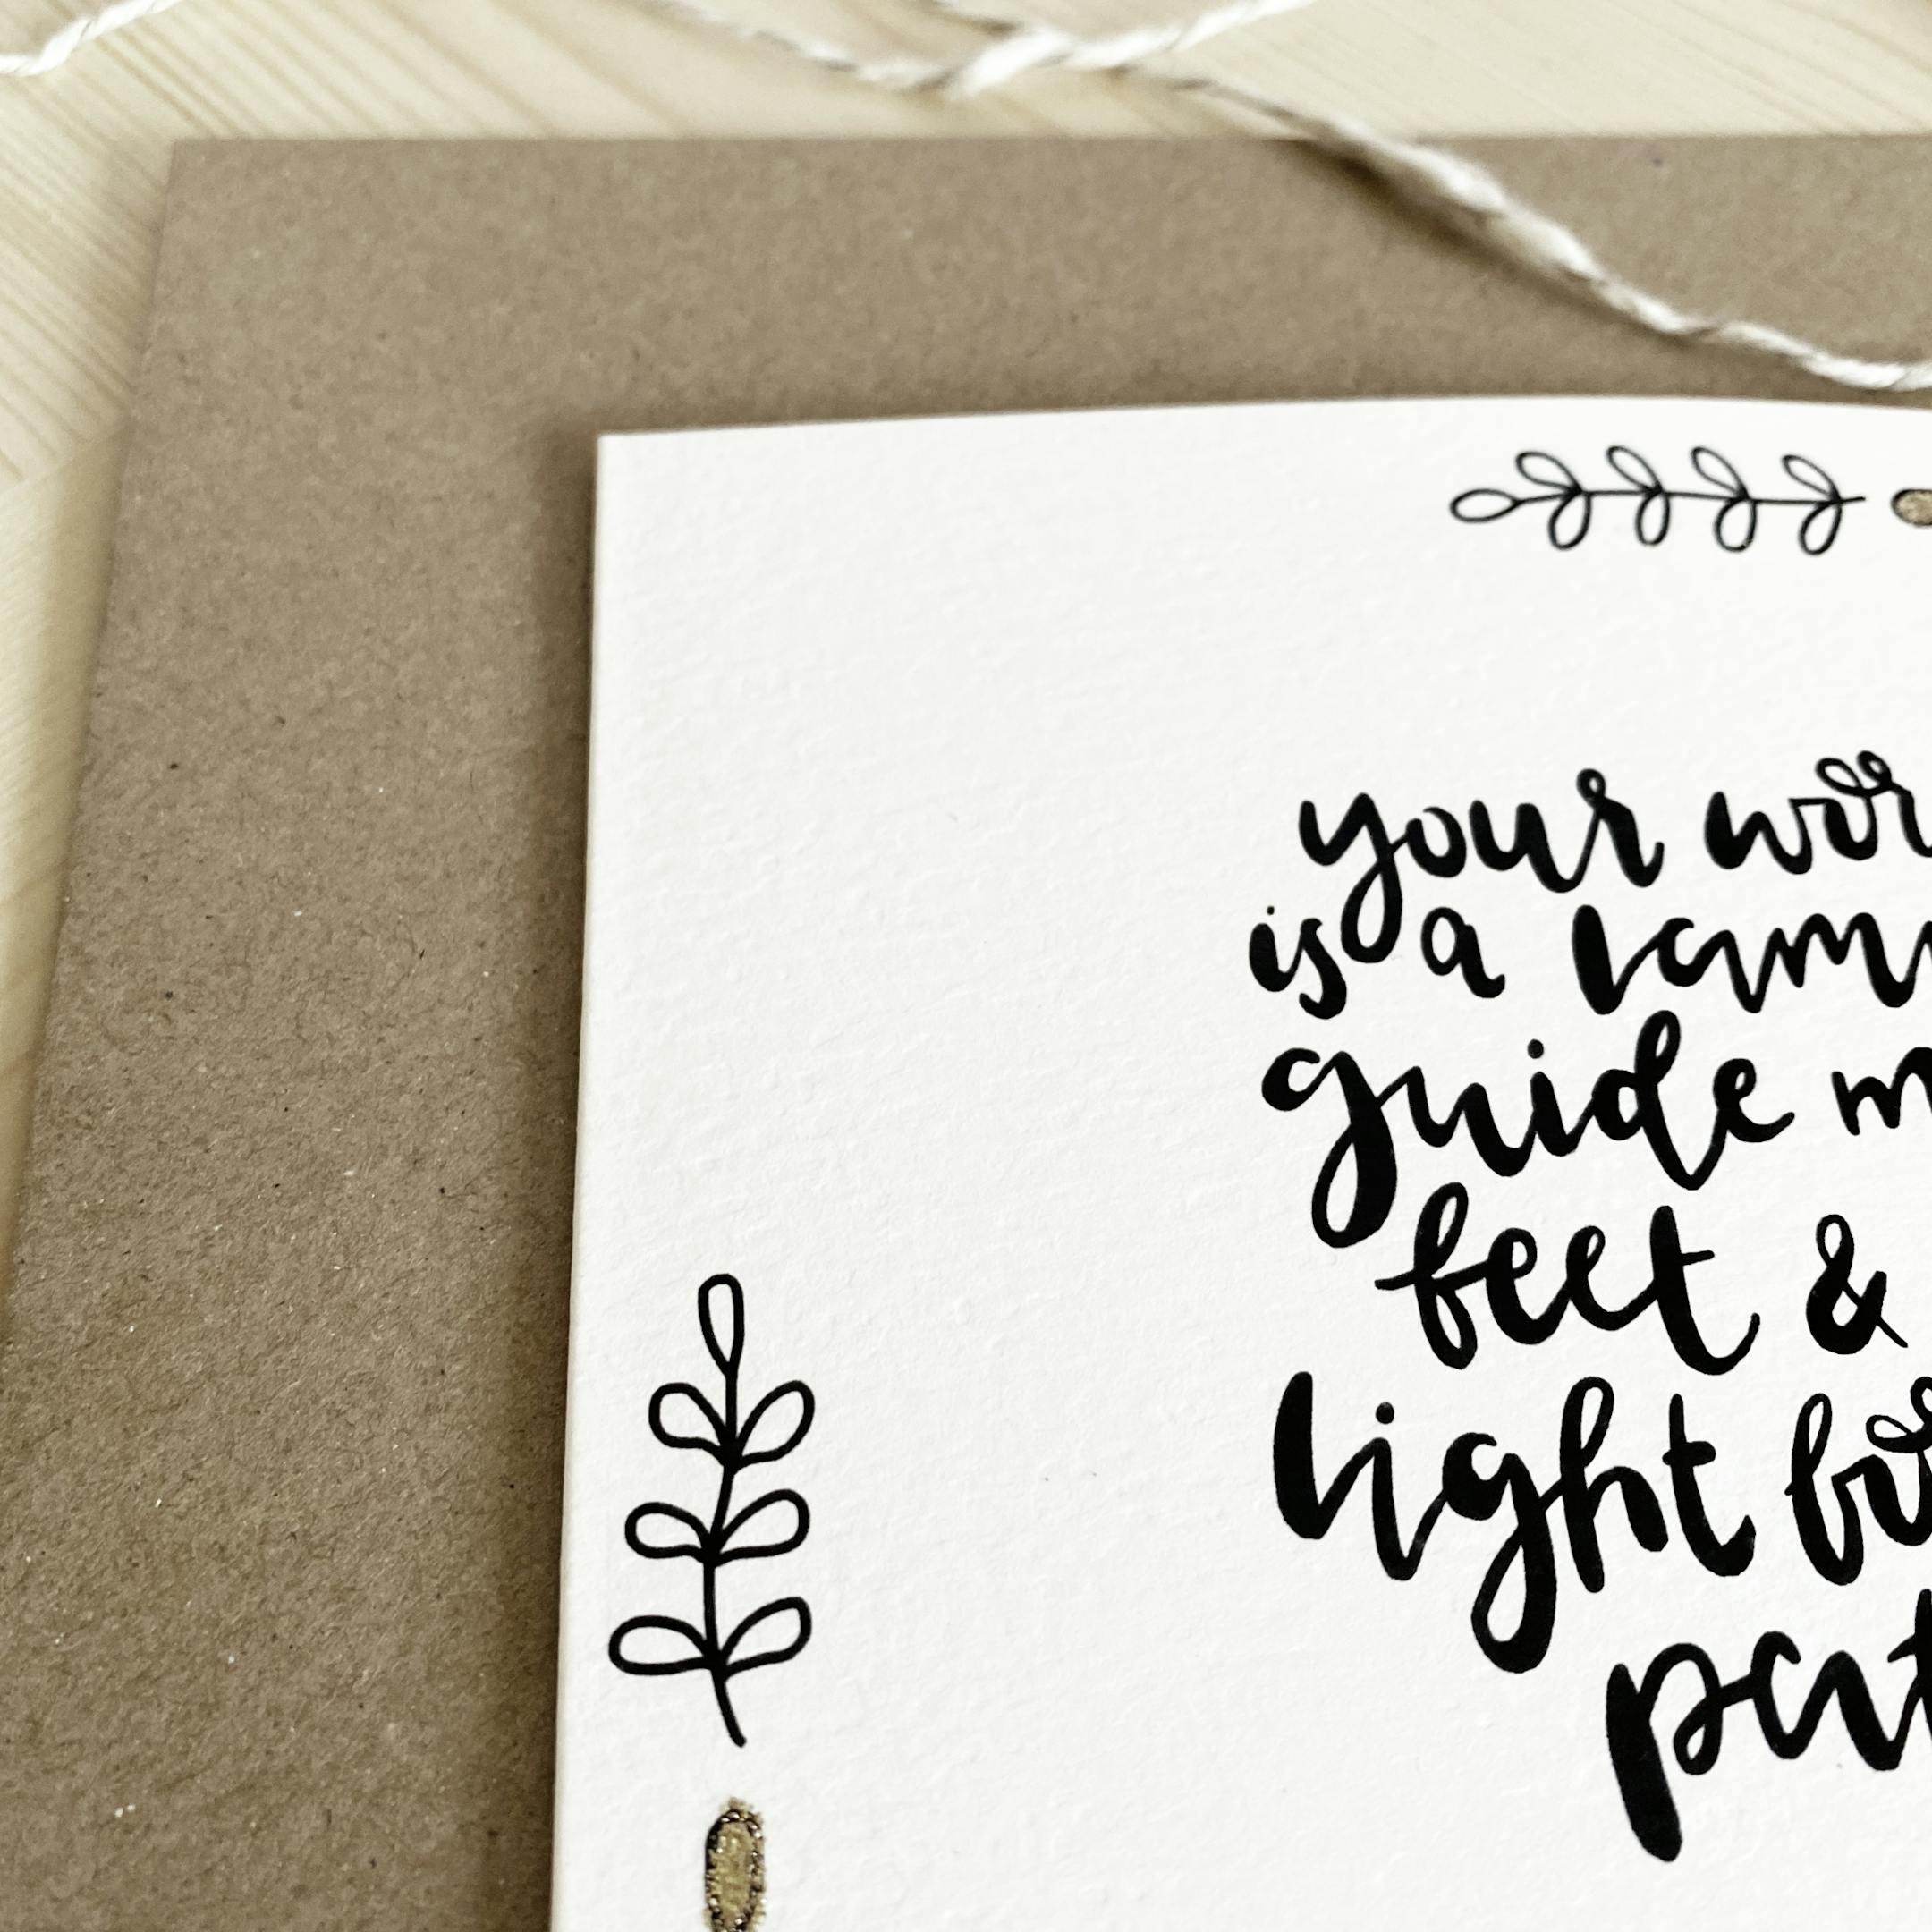 your wor
is a lam
guide m
feet &
light fo
pat